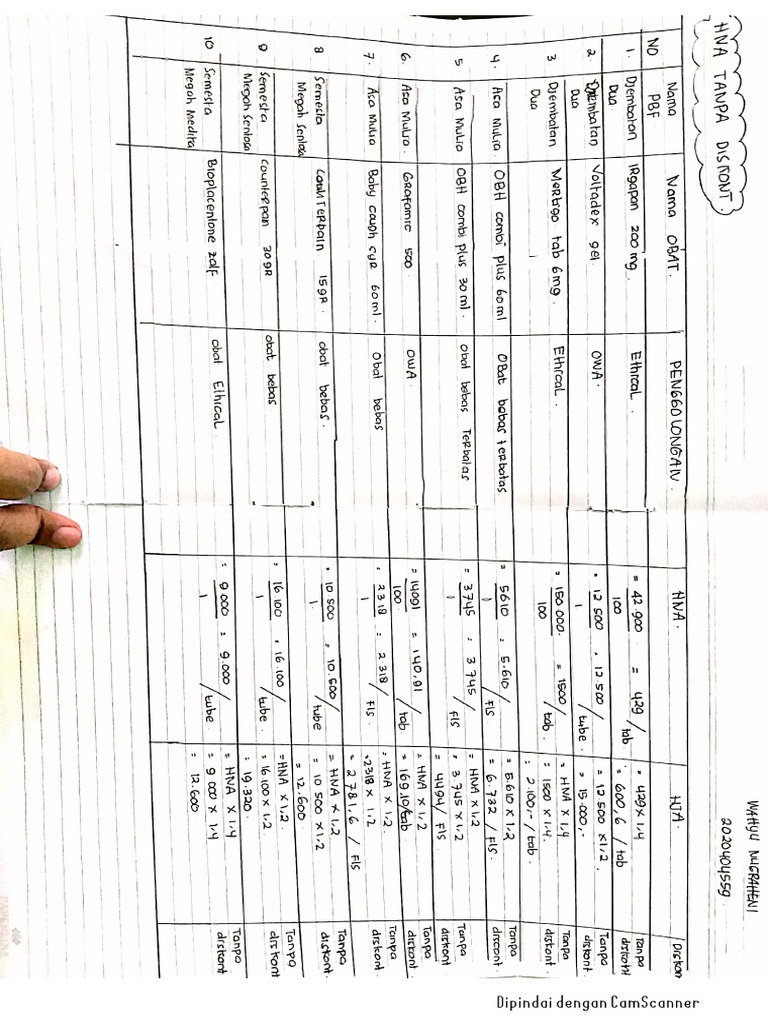 WAHYU NUGRAHENI
2020404559
HNA TANPA DISKONT.
NO Nama PBF Nama OBAT. PENGGOLONGAN. HNA. HJA. Diskon
1. Djembatan Dua IRgapan 200 mg. Ethical. = 42.900 / 100 = 429 / tab. = 429 x 1,4 = 600,6 / tab Tanpa diskont
2. Djembatan Dua Voltadex gel OWA. = 12.500 / 1 = 12.500 / tube. = 12.500 x 1,2. = 15.000,- Tanpa diskont.
3 Djembatan Dua Mertigo tab 6mg. Ethical. = 150.000. / 100 = 1500 / tab. = HNA x 1,4 = 1500 x 1,4. = 2.100,- / tab. Tanpa diskont.
4. Asa Mulia. OBH combi plus 60 ml Obat bebas terbatas = 5610 / 1 = 5.610 / Fls = 5.610 x 1,2 = 6.732 / Fls. Tanpa discont
5 Asa Mulia OBH combi plus 30 ml. obat bebas Terbatas = 3745 / 1 = 3.745 / Fls = HNA x 1,2 = 3.745 x 1,2 = 4494 / Fls Tanpa diskont.
6. Asa Mulia. Grafamic 500 OWA. = 14091 / 100 = 140,91 / tab = HNA x 1,2 = 169,10/tab Tanpa diskont.
7. Asa Mulia Baby cough syr 60 ml. Obat bebas = 2318 / 1 = 2.318 / Fls. = HNA x 1,2. = 2318 x 1,2 = 2 781,6 / Fls Tanpa diskont.
8 Semesta Megah Sentosa CounTerpain 15 gR. obat bebas. = 10.500 / 1. = 10.500 / tube = HNA x 1,2 = 10 500 x 1,2 = 12.600 Tanpa diskont.
9 Semesta Megah Sentosa Counterpain 30 gR obat bebas = 16.100 / 1 = 16.100 / tube. = HNA x 1,2. = 16.100 x 1,2 = 19.320. Tanpa diskont.
10 Semesta Megah Medita Bioplacentone Zalf obat Ethical. = 9.000 / 1 = 9.000 / tube = HNA x 1,4 = 9 000 x 1,4 = 12.600 Tanpa diskont.
Dipindai dengan CamScanner